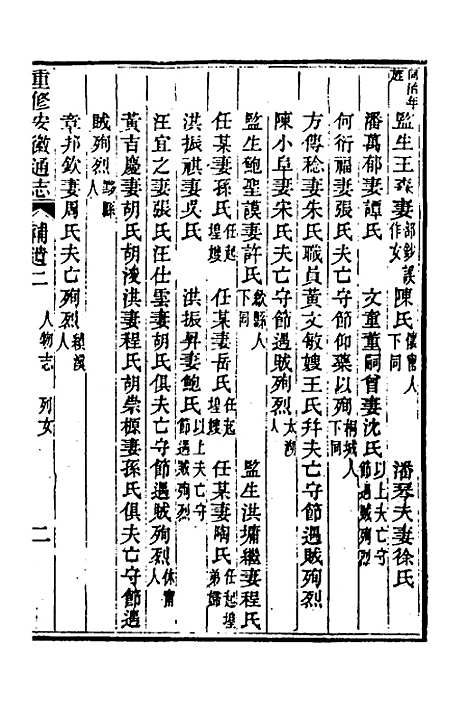 同治年
旌監生王森妻部鈔誤作女陳氏懷甯人下同 潘琴夫妻徐氏
潘萬郁妻譚氏 文童董嗣曾妻沈氏以上夫亡守節遇賊殉烈
何衍福妻張氏夫亡守節仰藥以殉桐城人下同
方傳稔妻朱氏職員黃文敏嫂王氏幷夫亡守節遇賊殉烈
陳小阜妻宋氏夫亡守節遇賊殉烈太湖人
監生鮑聖謨妻許氏歙縣人下同 監生洪墉繼妻程氏
任某妻孫氏任起煌嫂 任某妻岳氏任起煌嫂 任某妻陶氏任起煌弟婦
洪振祺妻吳氏 洪振昇妻鮑氏以上夫亡守節遇賊殉烈
汪宜之妻張氏汪仕雲妻胡氏俱夫亡守節遇賊殉烈休甯人
黃吉慶妻胡氏胡浚洪妻程氏胡崇極妻孫氏俱夫亡守節遇
賊殉烈黟縣人
章邦欽妻周氏夫亡殉烈績溪人
重修安徽通志 補遺二 人物志 列女 二